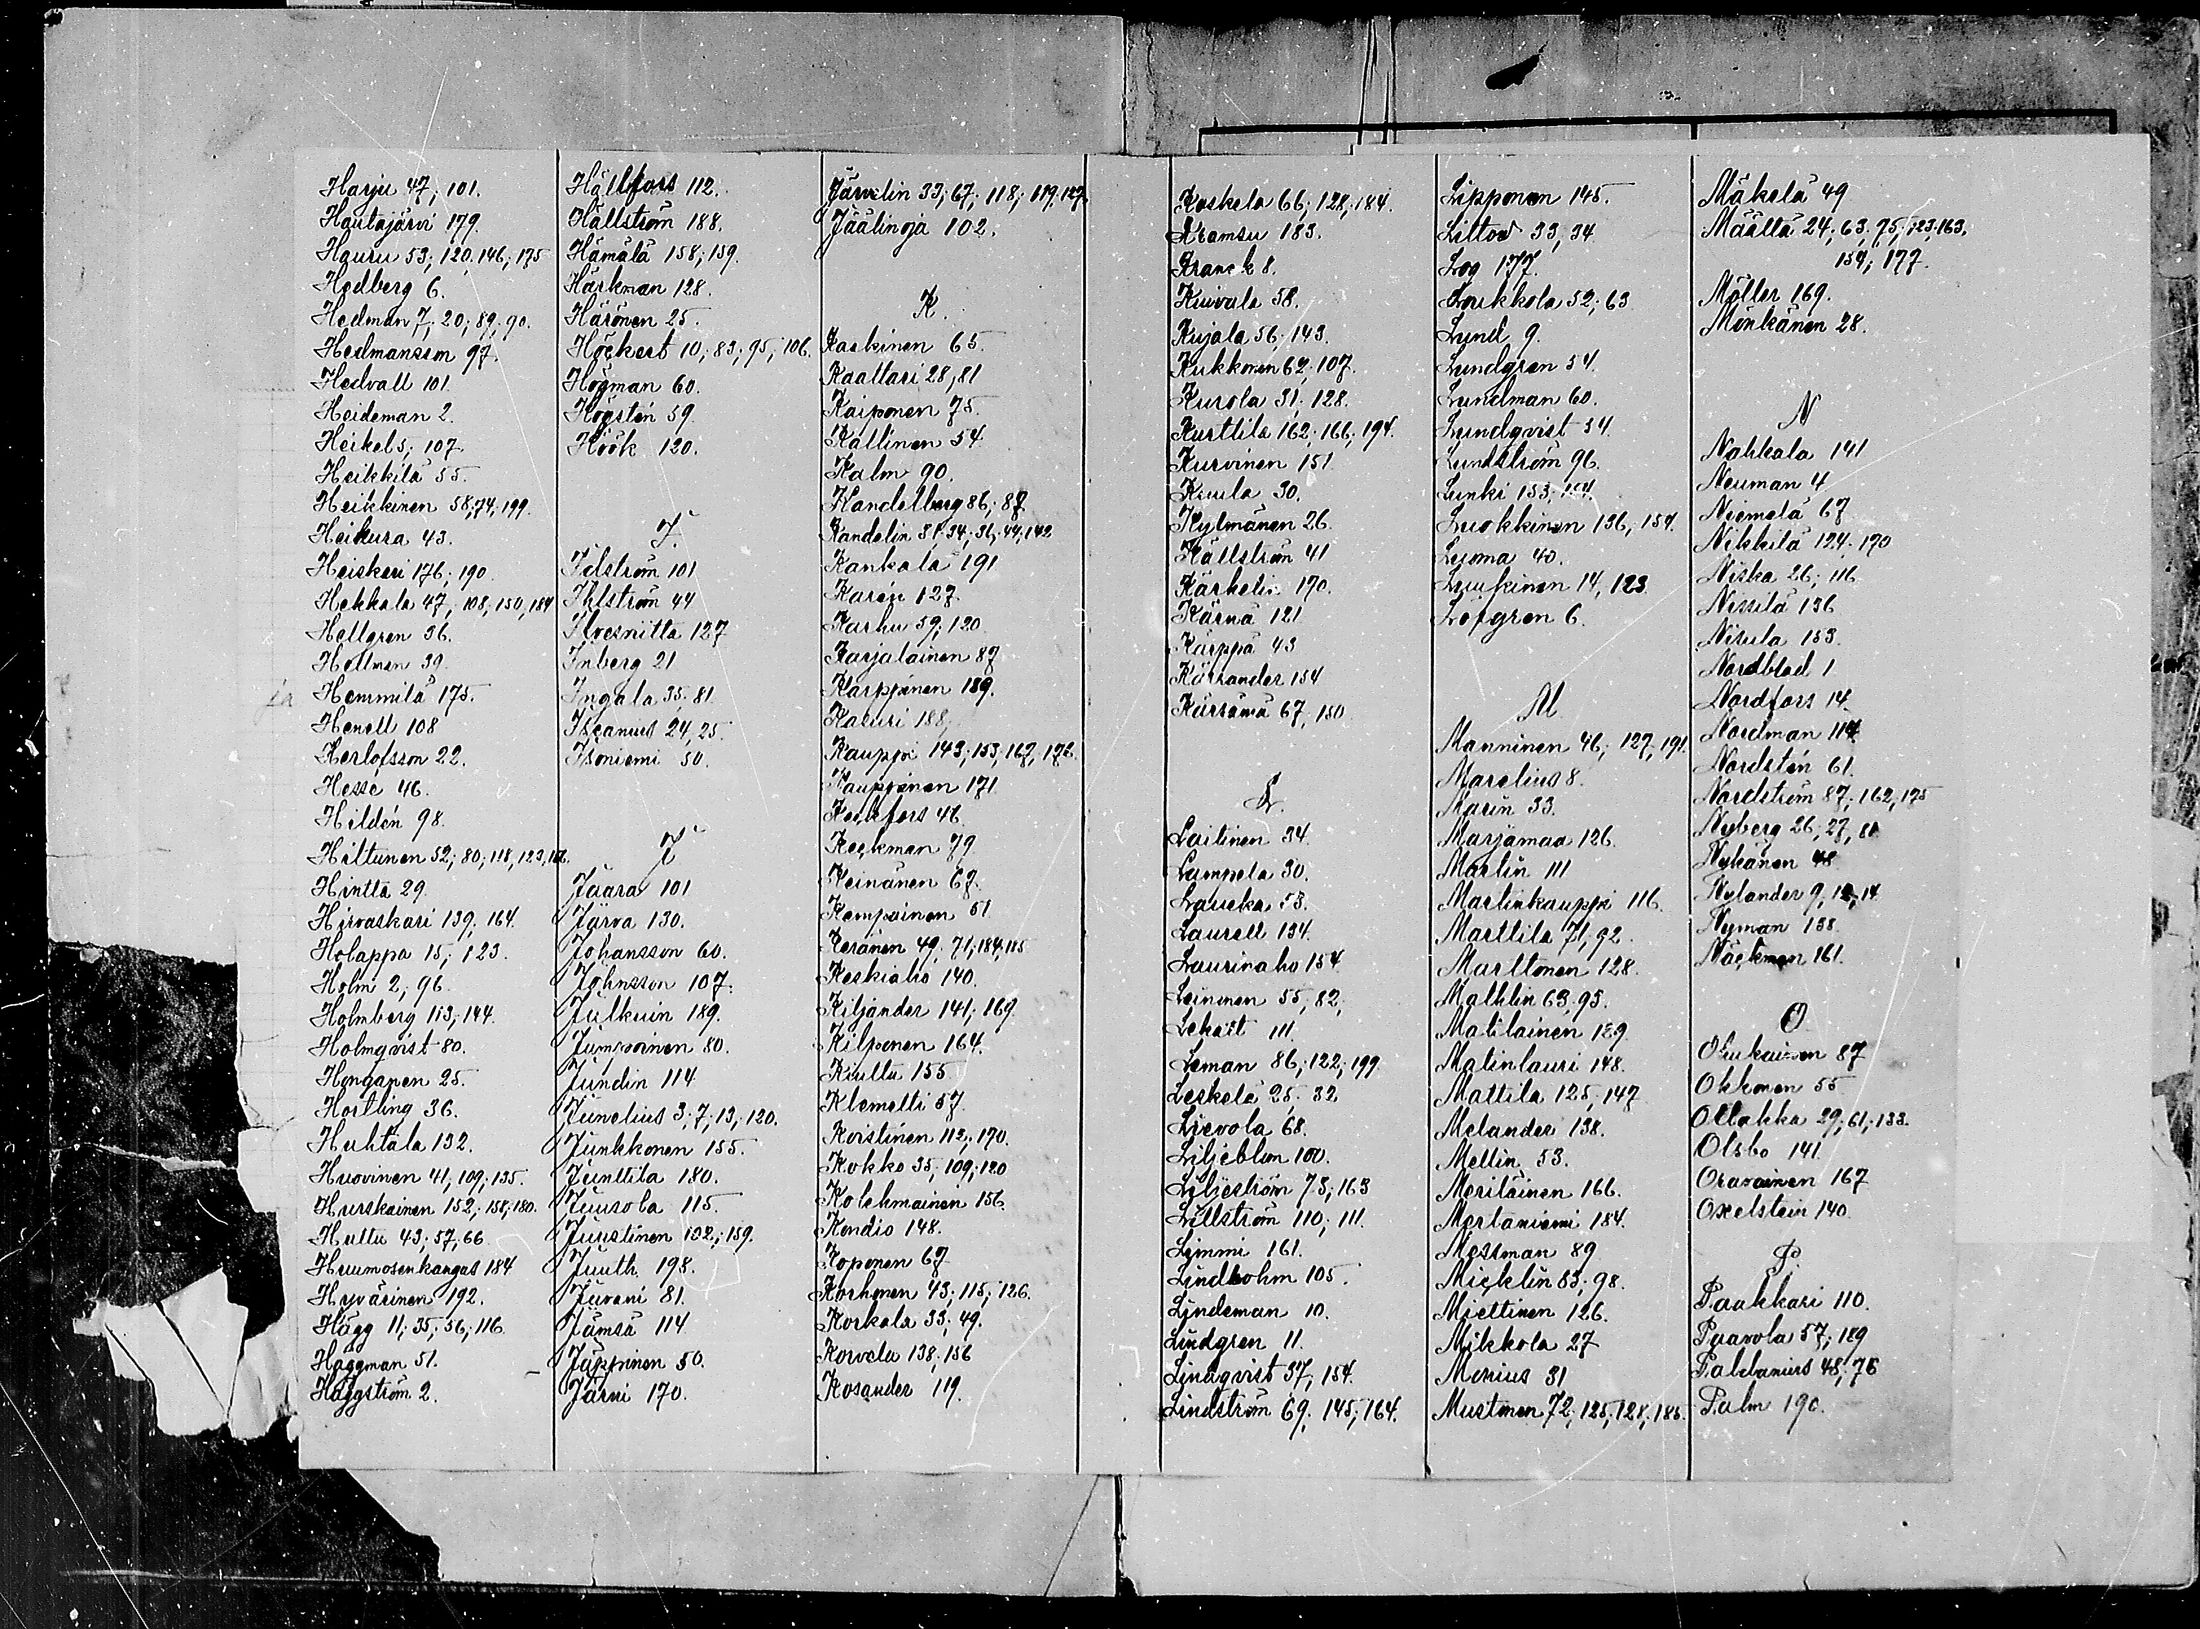 Harju 47; 101.
Hautajärvi 179.
Hauru 53; 120, 146; 175
Hedberg 6.
Hedman 7; 20; 89; 90.
Hedmansson 97.
Hedvall 101.
Heideman 2.
Heikel 5; 107.
Heikkilä 55.
Heikkinen 58; 74; 199.
Heikura 43.
Heiskari 176; 190.
Hekkala 47, 108, 150, 184
Hellgren 36.
Hellman 39.
Hemmilä 175.
Henell 108
Herlofsson 22.
Hesse 46.
Hildén 98.
Hiltunen 52; 80; 118, 123,
Hintta 29.
Hirvaskari 139; 164.
Holappa 15; 123.
Holm 2; 96.
Holmberg 113; 144.
Holmqvist 80.
Honganen 25.
Hortling 36.
Huhtala 132.
Huovinen 41, 109; 135.
Hurskainen 152; 158; 180.
Huttu 43; 57, 66
Huumosenkangas 184
Hyvärinen 192.
Hägg 11; 35; 56; 116.
Häggman 51.
Häggström 2.
Hällfors 112.
Hällström 188.
Hämälä 158; 159.
Härkman 128.
Härönen 25.
Höckert 10; 83; 95; 106.
Högman 60.
Högstén 59.
Höök 120.
I.
Idström 101
Ihlström 44
Ilvesniitta 127
Inberg 21
Ingala 35; 81.
Isoanius 24, 25.
Isoniemi 50.
J
Jaara 101
Järva 130.
Johansson 60.
Johnsson 107.
Julkuin 189.
Jumppinen 80.
Jundin 114
Junelius 3; 7; 13; 120.
Junkkonen 155.
Junttila 180.
Juusola 115.
Juustinen 102; 159.
Juuth 198.
Juvani 81.
Jämsä 114
Jäppinen 50.
Järni 170.
Järvelin 33; 67; 118; 119; 127.
Jäälinoja 102.
K.
Kaakinen 65.
Kaattari 28, 81
Kaiponen 75.
Kallinen 54
Kalm 90.
Kandelberg 86; 87
Kandelin 31; 34; 36; 44; 142
Kankala 191
Karén 127.
Karhu 59; 120
Karjalainen 87
Karppinen 189.
Katuri 188,
Kauppi 143; 153, 167, 176.
Kauppinen 171
Keckfors 46.
Keckman 79
Keinänen 67.
Kemppainen 51
Keränen 49; 71; 184, 185
Keskiaho 140.
Kiljander 141; 169
Kilponen 164.
Kiuttu 155
Klemetti 57.
Koistinen 112; 170.
Kokko 35, 109; 120
Kolehmainen 156
Kondio 148.
Koponen 67
Korhonen 43; 115; 126.
Korkala 33; 49.
Korvela 138; 156
Kosander 119.
Koskela 66; 128; 184.
Kramsu 183.
Kranck 8.
Kuivala 58.
Kujala 56; 143.
Kukkonen 62; 107.
Kurola 31; 128.
Kurttila 162; 166; 194.
Kurvinen 151
Kuula 30.
Kylmänen 26.
Källström 41
Kärkelin 170.
Kärnä 121
Kärppä 43
Kärrander 154
Kärsämä 67, 150
L.
Laitinen 34.
Lampela 30.
Laucka 53.
Laurell 134.
Laurinaho 154
Leinonen 55; 82,
Lekatt 111
Leman 86; 122; 199
Leskelä 25; 32
Lievola 68.
Liljeblom 100.
Liljeström 73; 163
Lillström 110; 111.
Limmi 161.
Lindbohm 105.
Lindeman 10.
Lindgren 11.
Lindqvist 37; 154.
Lindström 69; 145; 164.
Lipponen 145.
Littow 33, 34.
Log 177.
Loukkola 52; 63
Lund 9.
Lundgren 54.
Lundman 60.
Lundqvist 34.
Lundström 96.
Lunki 153; 154.
Luokkinen 136, 154.
Luoma 40.
Luukinen 14, 123.
Löfgren 6.
M
Manninen 46; 127, 191.
Marelius 8.
Marin 33.
Marjamaa 126.
Martin 111
Martinkauppi 116.
Marttila 71, 92.
Marttonen 128.
Mathlin 63, 95.
Matilainen 129
Matinlauri 148.
Mattila 125, 147
Melander 138.
Mellin 53.
Meriläinen 166.
Mertaniemi 184.
Messman 89
Micklin 83; 98.
Miettinen 126.
Mikkola 27
Monius 31
Mustonen 72; 125, 128; 185.
Mäkelä 49
Määttä 24; 63; 75; 123; 163.
154; 177.
Möller 169.
Mönkänen 28.
N
Nahkala 141
Neuman 4
Niemelä 67
Nikkilä 124; 170
Niska 26; 116
Nissilä 136
Nisula 153.
Nordblad 1
Nordfors 14.
Nordman 114
Nordstén 61.
Nordström 87; 162, 175
Nyberg 26; 27, 80
Nykänen 48
Nylander 9, 12, 14
Nyman 138.
Näckman 161.
O
Ohukainen 87
Okkonen 55
Ollakka 29; 61; 133.
Olsbo 141
Oravainen 167
Oxelstein 140.
P.
Paakkari 110.
Paavola 57; 189
Paldanius 48; 76
Palm 190.